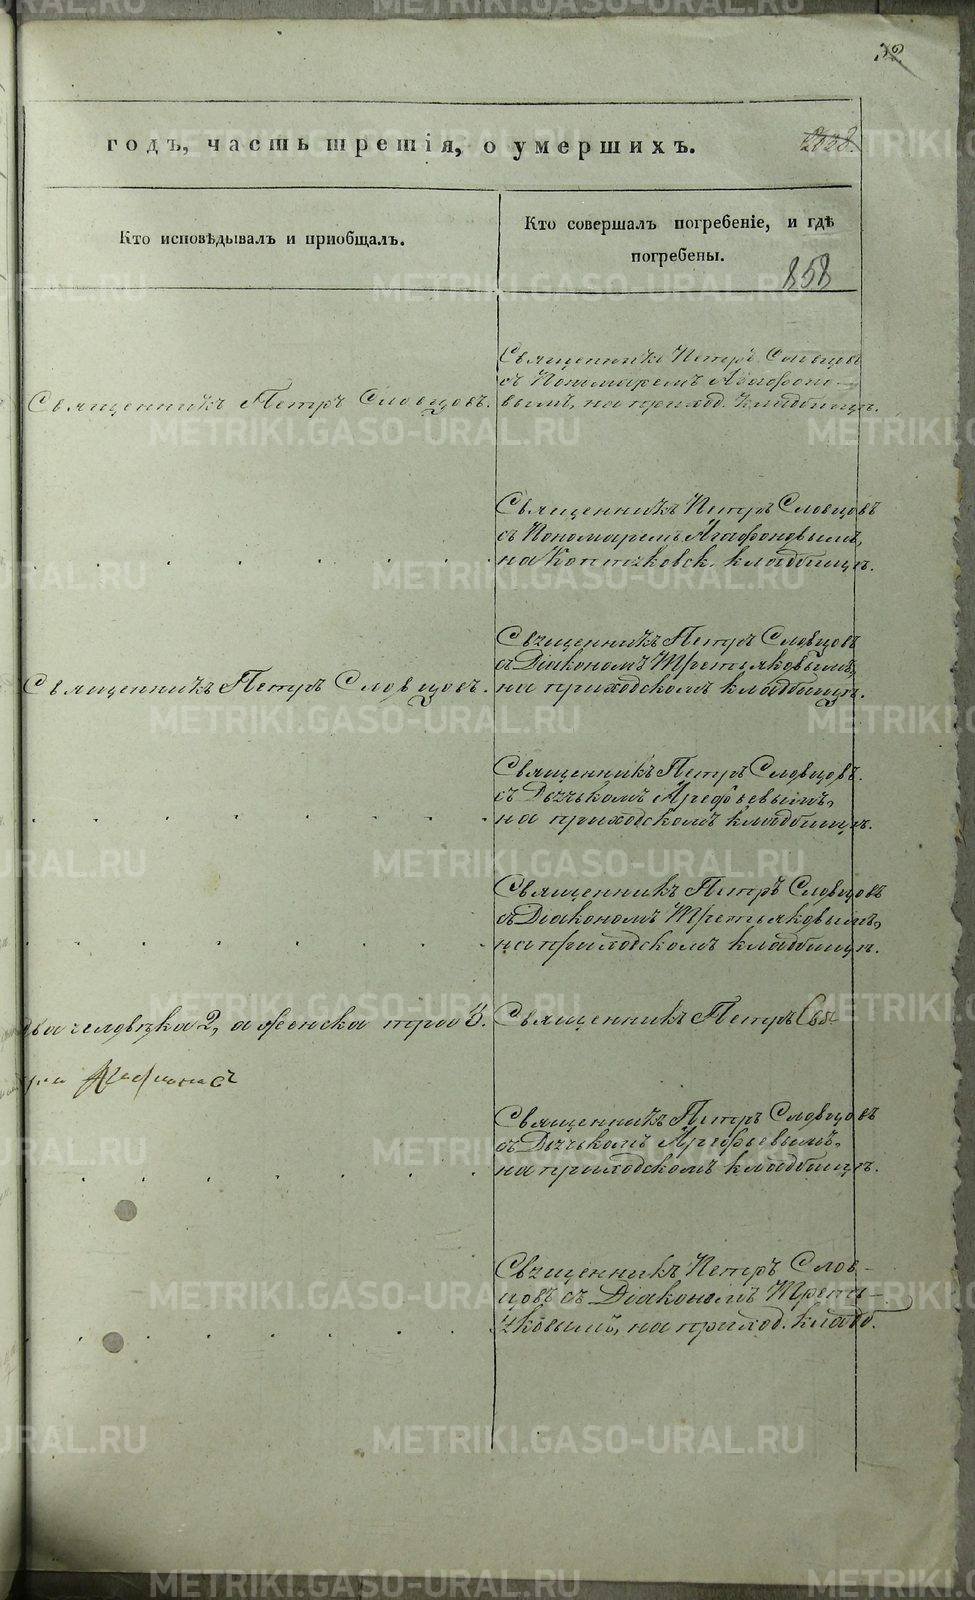 годъ, часть третія, о умершихъ.
Кто исповѣдывалъ и приобщалъ.
Кто совершалъ погребеніе, и гдѣ
погребены.
858
Священникъ Петръ Словцовъ
съ Пономаремъ Агафоно-
Священникъ Петръ Словцовъ.
вымъ, на приход. кладбищѣ.
Священникъ Петръ Словцовъ
съ Пономаремъ Агафоновымъ,
на Коптяковск. кладбищѣ.
Священникъ Петръ Словцовъ
съ Діакономъ Третьяковымъ,
Священникъ Петръ Словцовъ.
на приходскомъ кладбищѣ.
Священникъ Петръ Словцовъ.
съ Дьячькомъ Арефьевымъ,
на приходскомъ кладбищѣ.
Священникъ Петръ Словцовъ
съ Діакономъ Третьяковымъ,
на приходскомъ кладбищѣ.
два человѣка 2, а женска трое 3.
Священникъ Петръ
Священникъ Петръ Словцовъ
съ Дьячькомъ Арефьевымъ,
на приходскомъ кладбищѣ.
Священникъ Петръ Слов-
цовъ съ Діакономъ Треть-
яковымъ, на приход. кладб.
METRIKI.GASO-URAL.RU